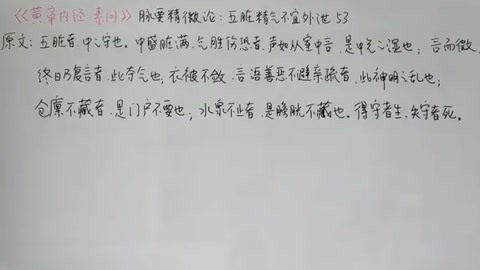 《黄帝内经 素问》脉要精微论：五脏精气不宜外泄 53
原文：五脏者，中之守也。中盛脏满，气胜伤恐者，声如从室中言，是中气之湿也；言而微，
终日乃复言者，此夺气也；衣被不敛，言语善恶不避亲疏者，此神明之乱也；
仓廪不藏者，是门户不要也；水泉不止者，是膀胱不藏也。得守者生，失守者死。